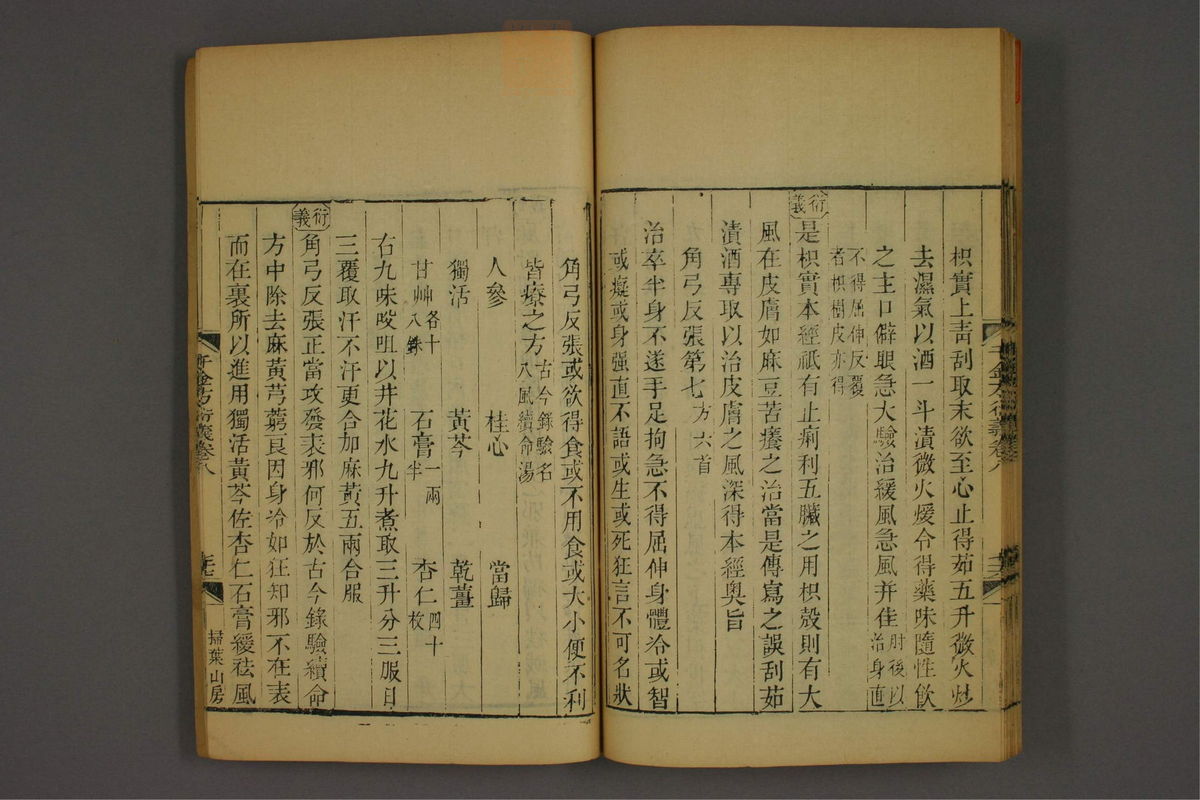 枳實上青刮取末欲至心止得茹五升微火炒
去濕氣以酒一斗漬微火煖令得藥味隨性飲
之主口僻眼急大驗治緩風急風并佳肘後以治身直
不得屈伸反覆者枳樹皮亦得
衍義
是枳實本經祗有止痢利五臟之用枳殼則有大
風在皮膚如麻豆苦癢之治當是傳寫之誤刮茹
漬酒專取以治皮膚之風深得本經奧旨
角弓反張第七方六首
治卒半身不遂手足拘急不得屈伸身體冷或智
或癡或身强直不語或生或死狂言不可名狀
角弓反張或欲得食或不用食或大小便不利
皆療之方古今錄驗名八風續命湯
人參 桂心 當歸
獨活 黃芩 乾薑
甘艸各十八銖 石膏一兩半 杏仁四十枚
右九味㕮咀以井花水九升煮取三升分三服日
三覆取汗不汗更合加麻黃五兩合服
衍義
角弓反張正當攻發表邪何反於古今錄驗續命
方中除去麻黃芎藭良因身冷如狂知邪不在表
而在裏所以進用獨活黃芩佐杏仁石膏緩祛風
千金方衍義卷八
掃葉山房